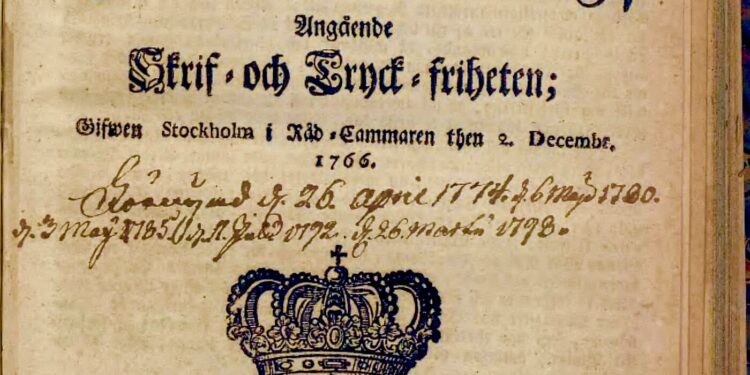 Angående
Skrif- och Tryck-friheten;
Gifwen Stockholm i Råd-Cammaren then 2. Decembr.
1766.
d. 26. april 1774. d. 6 Maji 1780.
d. 3 Maji 1785. d. 11. 1792. d. 26 Martii 1798.